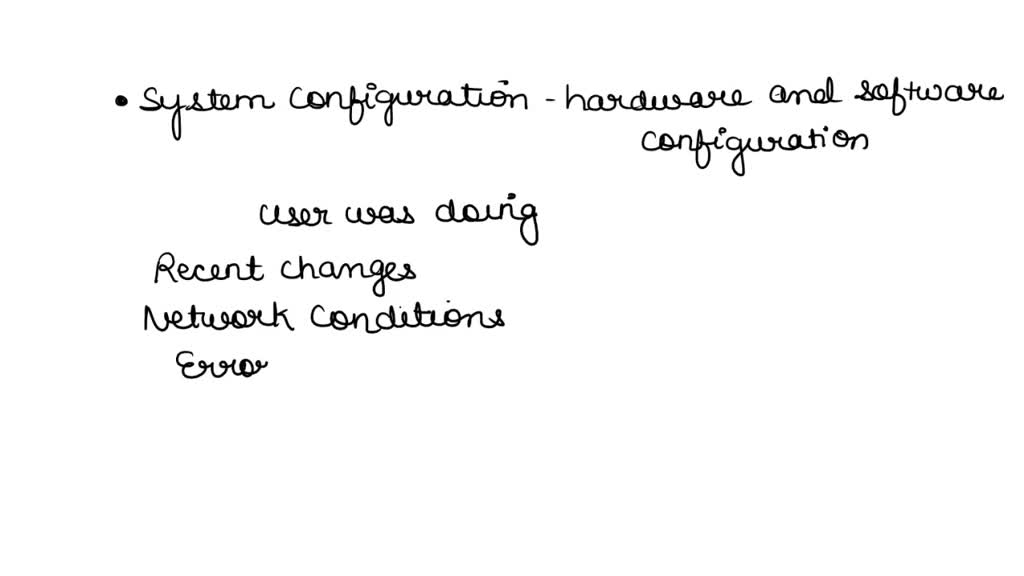 • System configuration - hardware and software
configuration
user was doing
Recent changes
Network conditions
Erro